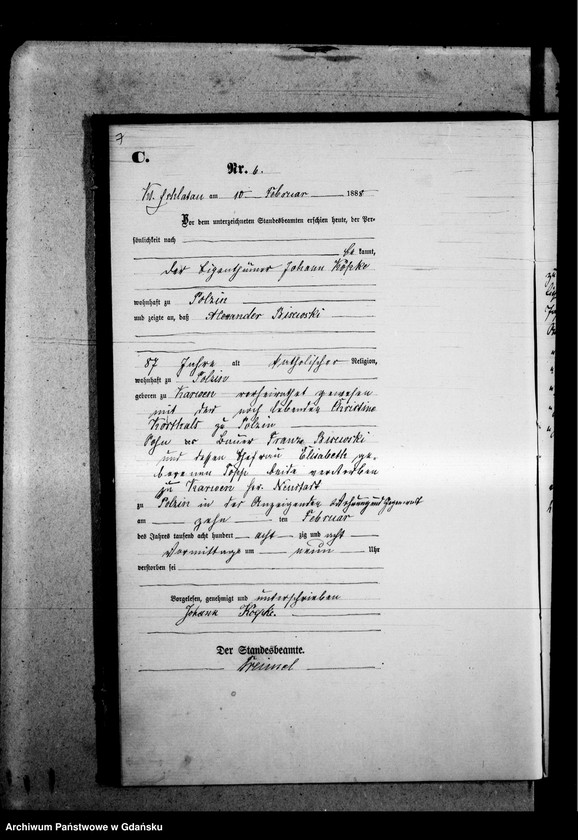 7
C.
Nr. 6.
am 10 Februar 1888
Vor dem unterzeichneten Standesbeamten erschien heute, der Per-
sönlichkeit nach
kannt,
der Eigenthümer Johann Köpke
wohnhaft zu Polzin
und zeigte an, daß Alexander
87 Jahre alt katholischer Religion,
wohnhaft zu Polzin
geboren zu Karwen verheirathet gewesen
mit der noch lebenden Christine
zu Polzin
Sohn des Bauer Franz
und dessen Ehefrau Elisabeth ge-
borenen beide verstorben
zu Karwen
zu Polzin in des Anzeigenden Wohnung und Gegenwart
am zehn ten Februar
des Jahres tausend acht hundert acht zig und acht
Vormittags um neun Uhr
verstorben sei
Vorgelesen, genehmigt und unterschrieben
Johann Köpke.
Der Standesbeamte.
Archiwum Państwowe w Gdańsku